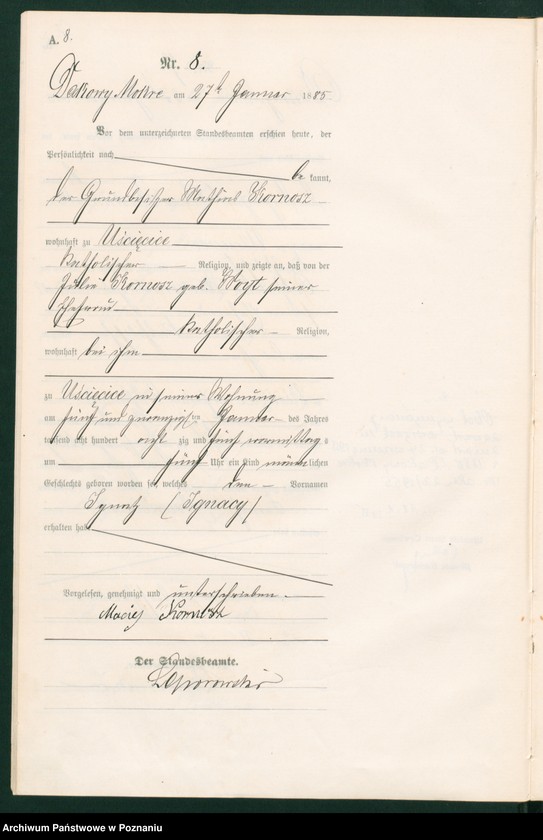 A. 8.
Nr. 8.
Dakowy Mokre am 27t Januar 1885
Vor dem unterzeichneten Standesbeamten erschien heute, der
Persönlichkeit nach
be kannt,
der Grundbesitzer Mathias Kornosz
wohnhaft zu Uścięcice
katholischer Religion, und zeigte an, daß von der
Julie Kornosz geb. Woyt seiner
Ehefrau
katholischer Religion,
wohnhaft bei ihm
zu Uścięcice in seiner Wohnung
am fünf und zwanzigsten Januar des Jahres
tausend acht hundert acht zig und fünf vormittags
um fünf Uhr ein Kind männlichen
Geschlechts geboren worden sei, welches den Vornamen
Ignatz (Ignacy)
erhalten habe
Vorgelesen, genehmigt und unterschrieben.
Maciej Kornosz
Der Standesbeamte.
Archiwum Państwowe w Poznaniu